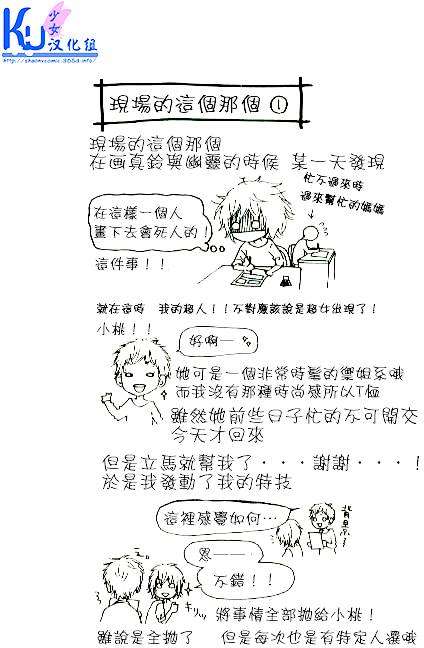 KU
少女
汉化组
現場的這個那個 ①
現場的這個那個
在画真鈴與幽靈的時候 某一天發現
忙不過來時
過來幫忙的媽媽
在這樣一個人
畫下去會死人的！
這件事！！
就在這時 我的超人！！不對應該說是超女出現了！
小桃！！
好啊—
她可是一個非常時髦的
而我沒有那種時尚感所以T恤
雖然她前些日子忙的不可開交
今天才回來
但是立馬就幫我了・・・謝謝・・・！
於是我發動了我的特技
背景~
這裡感覺如何…
恩——
不錯！！
キリッ
將事情全部拋給小桃！
雖說是全拋了 但是每次也是有特定人選哦